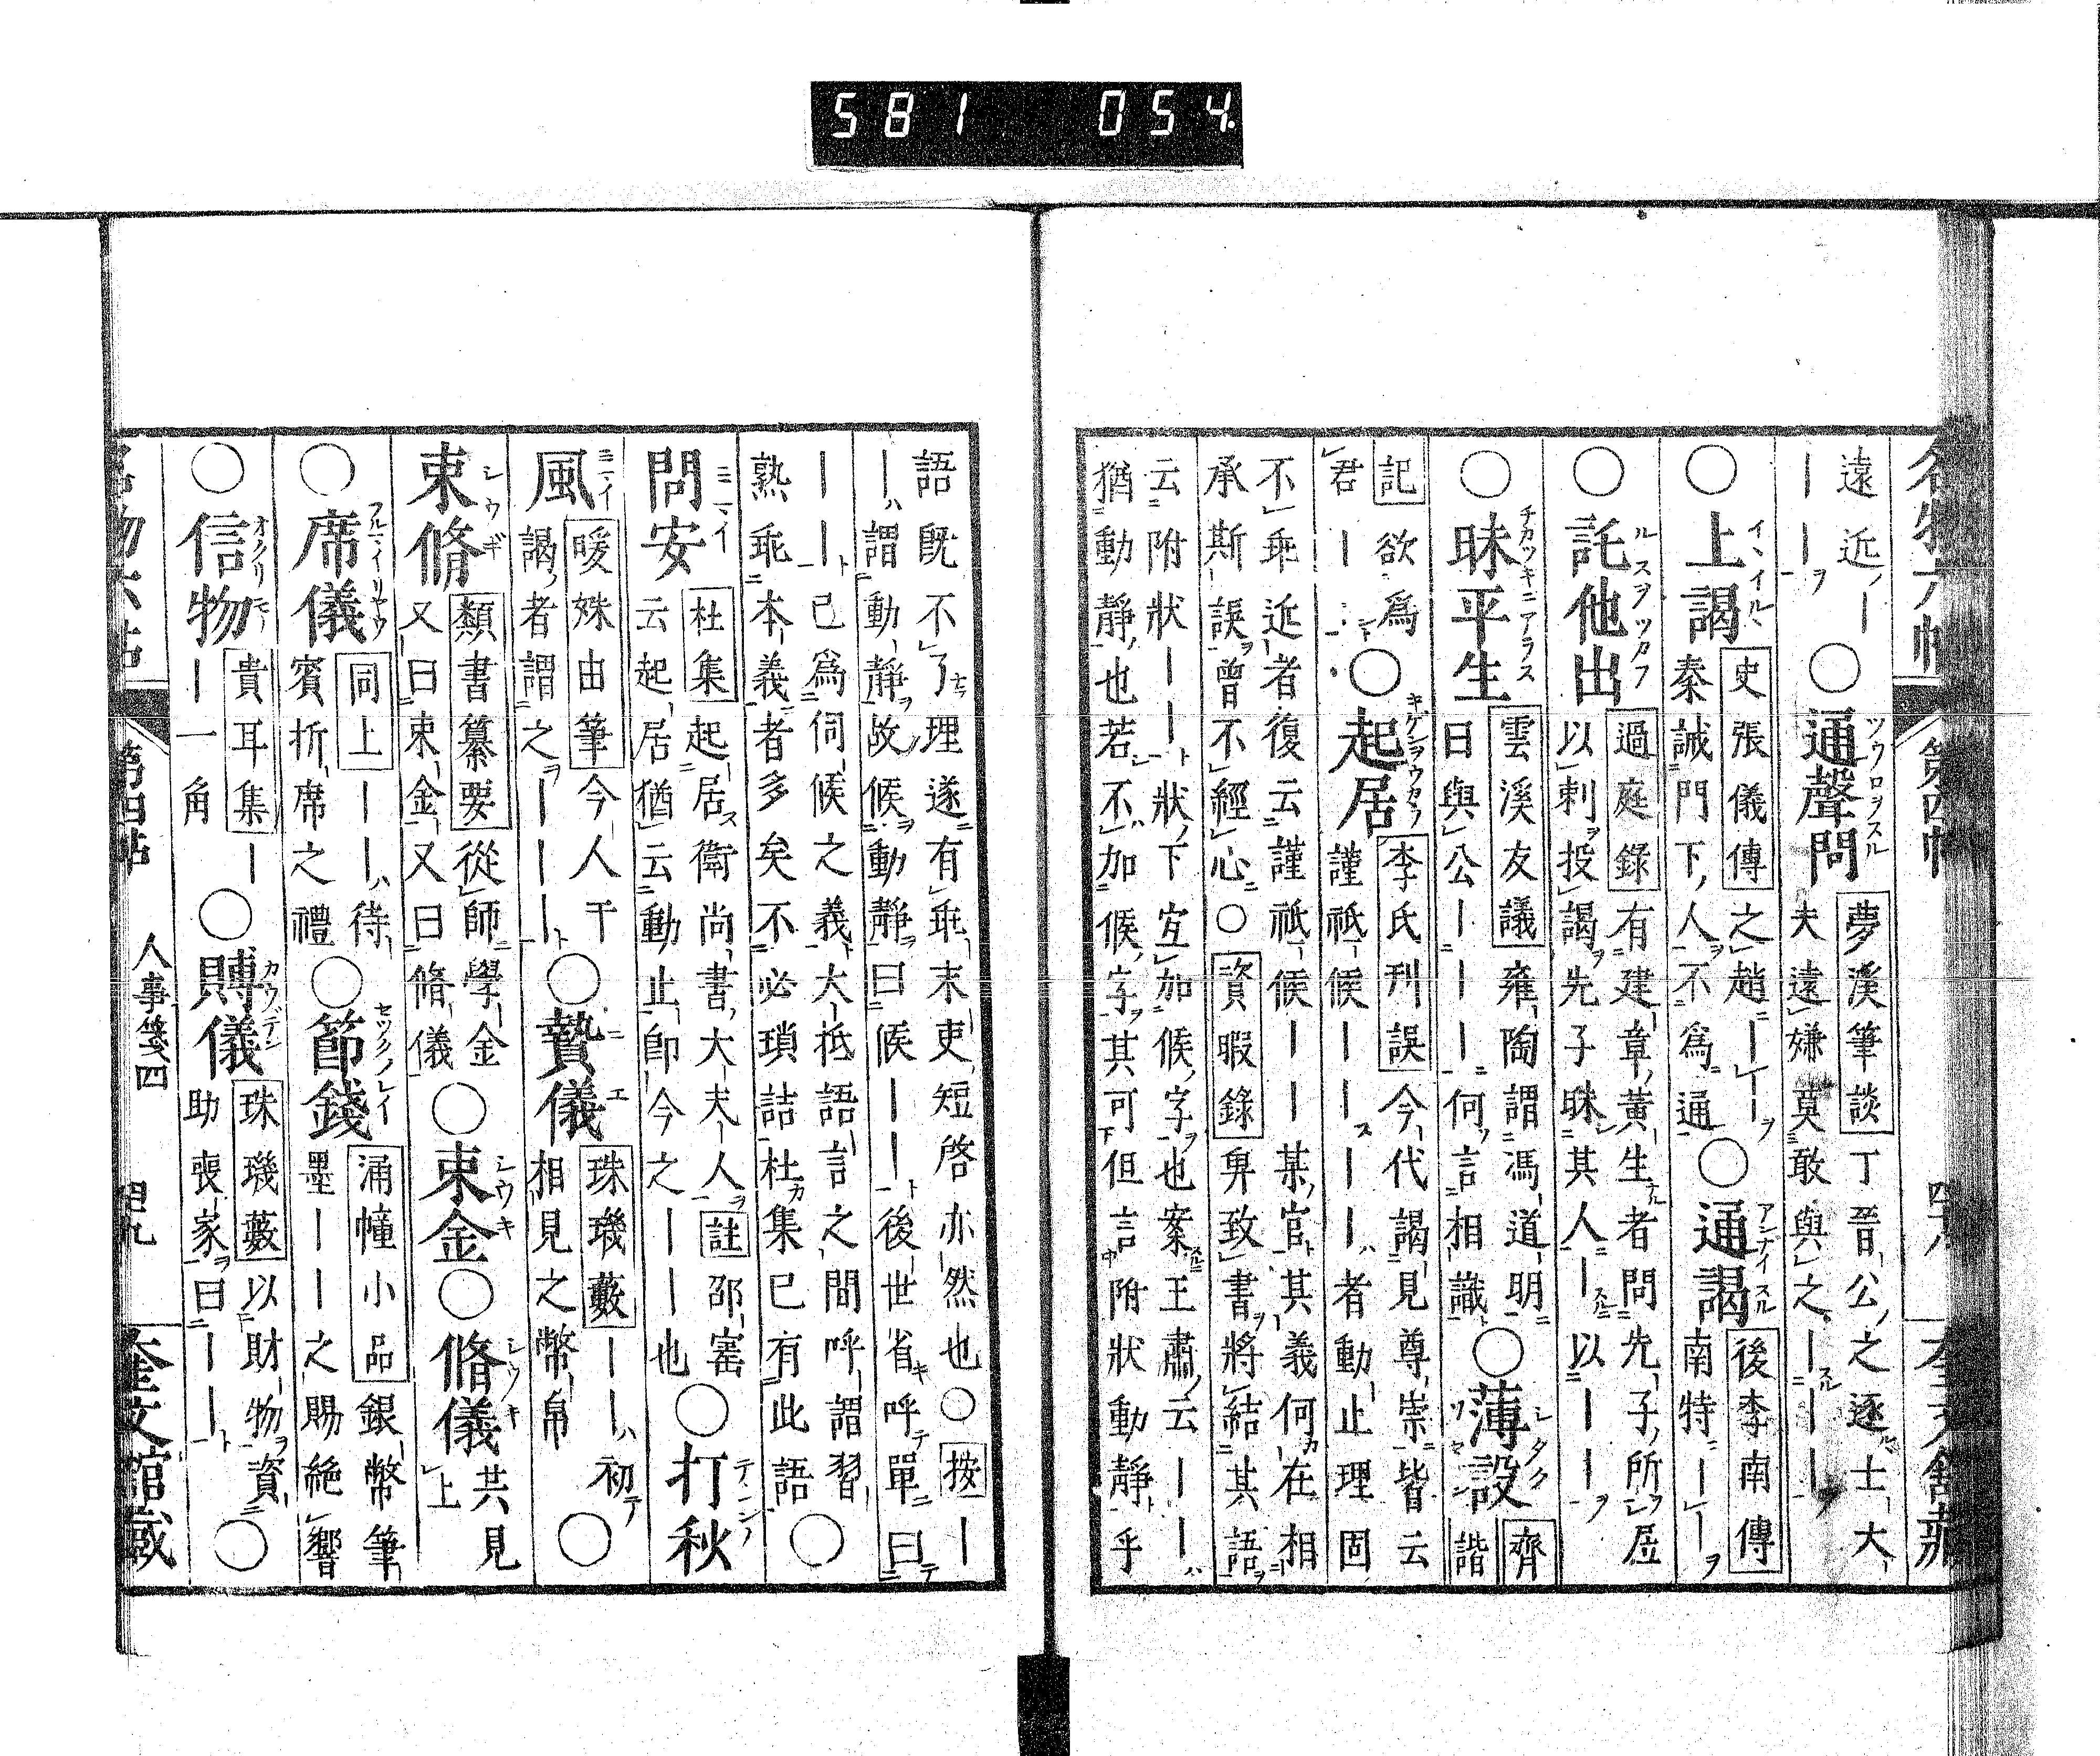 581 054
名物六帖 第四帖 四十八 奎文館藏
遠近—
——
○通聲問 夢溪筆談 丁晉公之逐士大
夫遠嫌莫敢與之———
○上謁 史張儀傳 之趙———
秦誡門下人不爲通
○通謁 後李南傳
南特——
○託他出 過庭錄 有建章黃生者問先子所居
以刺投謁先子昧其人—以———
○昧平生 雲溪友議 雍陶謂馮道明
曰與公———何言相識
○薄設 齊諧
記 欲爲
君——
○起居 李氏刊誤 今代謁見尊崇皆云
謹祗候————者動止理固
不乖近者復云謹祗候——某官其義何在相
承斯誤曾不經心○資暇錄 身致書將結其語
云附狀——狀下宜加候字也案王肅云——
猶動靜也若不加候字其可但言附狀動靜乎
語既不了理遂有乖末吏短啓亦然也○按—
—謂動靜故候動靜曰候——後世省呼單曰
——已爲伺候之義大抵語言之間呼謂習
熟乖本義者多矣不必瑣詰杜集已有此語○
問安 杜集 起居衛尚書大夫人 註 邵寚
云起居猶云動止即今之——也
○打秋
風 暖姝由筆 今人干
謁者謂之———
○贄儀 珠璣藪 ——初
相見之幣帛
○
束脩 類書纂要 從師學金
又曰束金又曰脩儀
○束金○脩儀 共見
上
○席儀 同上 ——待
賓折席之禮
○節錢 涌幢小品 銀幣筆
墨——之賜絶響
○信物 貴耳集 —
—一角
○賻儀 珠璣藪 以財物資
助喪家曰——
○
名物六帖 第四帖 人事箋四 四十九 奎文館藏